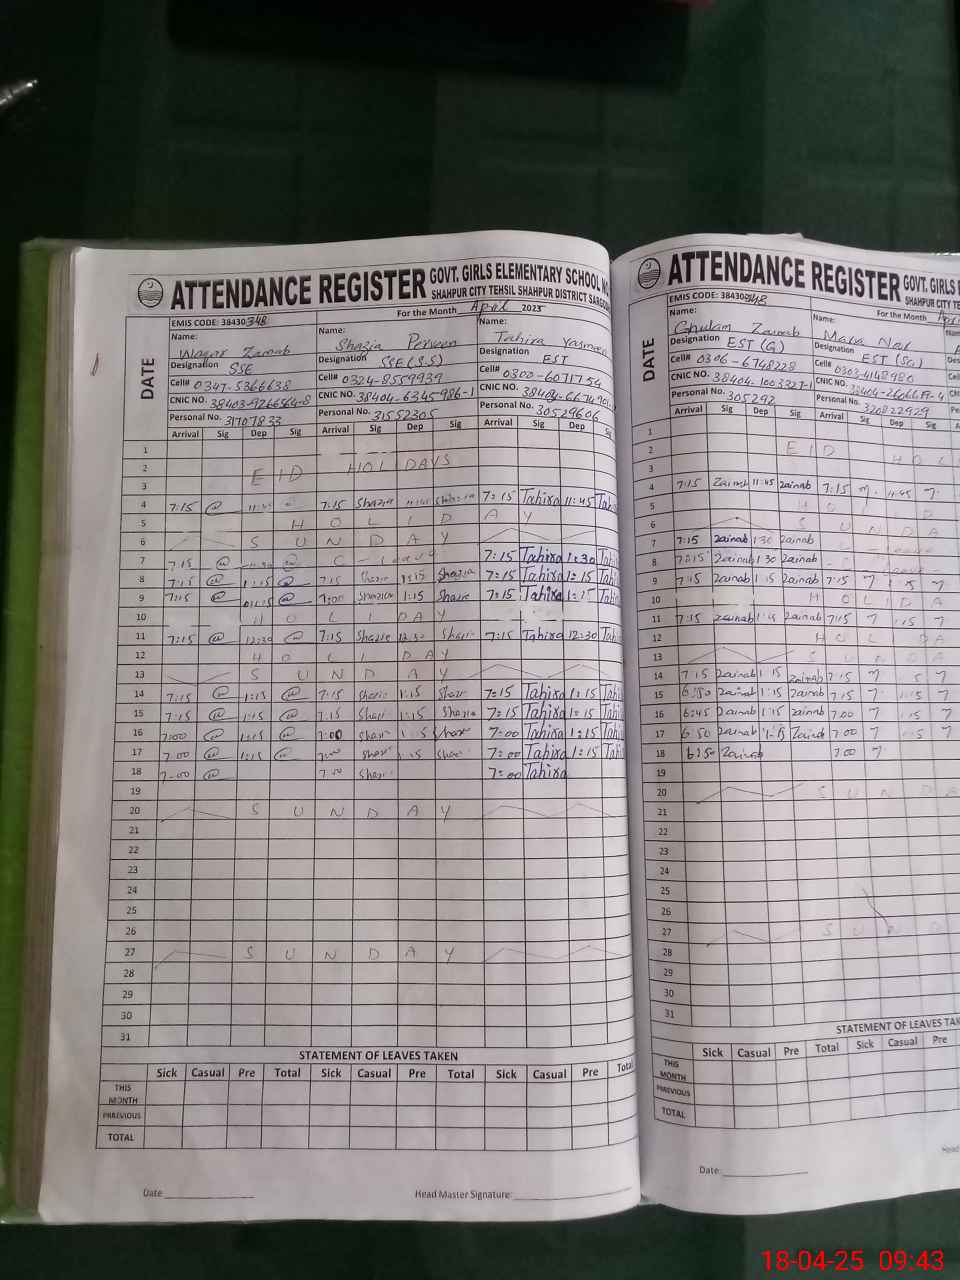 ATTENDANCE REGISTER GOVT. GIRLS ELEMENTARY SCHOOL
SHAHPUR CITY TEHSIL SHAHPUR DISTRICT
EMIS CODE: 38430348 For the Month April 2025
DATE
Name: Name: Name:
Waqar Zainab Shazia Perveen Tahira Yasmeen
Designation SSE Designation SSE (S.S) Designation EST
Cell# 0347-5366638 Cell# 0324-8559939 Cell# 0300-6071754
CNIC NO. 38403-9266564-8 CNIC NO. 38404-6345986-1 CNIC NO.
Personal No. 31707833 Personal No. 31552305 Personal No. 30529606
Arrival Sig Dep Sig Arrival Sig Dep Sig Arrival Sig Dep Sig
1
2 EID HOLIDAYS
3
4 7:15 7:15 Shazia Shazia 7:15 Tahira 11:45 Tahi
5 HOLIDAY
6 SUNDAY
7 7:15 C-leave 7:15 Tahira 1:30 Tahi
8 7:15 1:15 7:15 Shazia 1:15 Shazia 7:15 Tahira 1:15 Tahi
9 7:15 01:15 7:00 Shazia 1:15 Shazia 7:15 Tahira 1:15 Tahi
10 HOLIDAY
11 7:15 12:30 7:15 Shazia 12:30 Shazia 7:15 Tahira 12:30 Tahi
12 HOLIDAY
13 SUNDAY
14 7:15 1:15 7:15 Shazia 1:15 Shazia 7:15 Tahira 1:15 Tahi
15 7:15 1:15 7:15 Shazia 1:15 Shazia 7:15 Tahira 1:15 Tahi
16 7:00 1:15 7:00 Shazia 1:15 Shazia 7:00 Tahira 1:15 Tahi
17 7:00 1:15 7:00 Shazia 1:15 Shazia 7:00 Tahira 1:15 Tahi
18 7:00 7:00 Shazia 7:00 Tahira
19
20 SUNDAY
21
22
23
24
25
26
27 SUNDAY
28
29
30
31
STATEMENT OF LEAVES TAKEN
Sick Casual Pre Total Sick Casual Pre Total Sick Casual Pre Total
THIS MONTH
PRAEVIOUS
TOTAL
Date Head Master Signature:
ATTENDANCE REGISTER GOVT. GIRLS
SHAHPUR CITY
EMIS CODE: 38430348 For the Month
DATE
Name: Name:
Ghulam Zainab
Designation EST (G) Designation
Cell# 0306-6748228 Cell# 0303-4148980
CNIC NO. 38404-1003327-1 CNIC NO.
Personal No. 305292 Personal No. 320822929
Arrival Sig Dep Sig Arrival Sig Dep Sig
1
2 EID HOL
3
4 7:15 Zainab 11:45 zainab 7:15 11:45
5 HOLID
6 SUNDA
7 7:15 zainab 1:30 zainab
8 7:15 zainab 1:30 zainab
9 7:15 zainab 1:15 zainab 7:15 1:15
10 HOLIDA
11 7:15 zainab zainab 7:15
12 HOLIDA
13 SUNDA
14 7:15 zainab 1:15 zainab 7:15
15 6:50 zainab 1:15 zainab 7:15 1:15
16 6:45 zainab 1:15 zainab 7:00 1:15
17 6:50 zainab 1:15 zainab 7:00
18 6:50 zainab 7:00
19
20 SUNDA
21
22
23
24
25
26
27 SUND
28
29
30
31
STATEMENT OF LEAVES TAK
Sick Casual Pre Total Sick Casual Pre
THIS MONTH
PRAEVIOUS
TOTAL
Date: Head
18-04-25 09:43